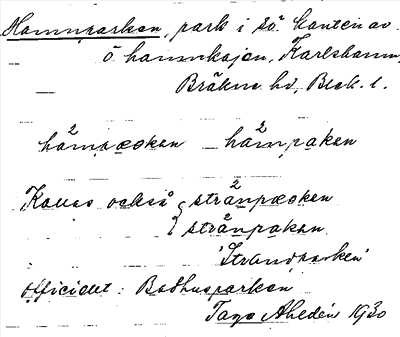 Hamnparken, park i sö. kanten av
ö. hamnkajen, Karlshamn,
Bräkne hd, Blek. l.
2 2
hamparken hampaken
Kallas också { 2 strånparken
{ strånpakan
'Strandparken'
officiellt: Badhusparken
Tage Ahldén 1930